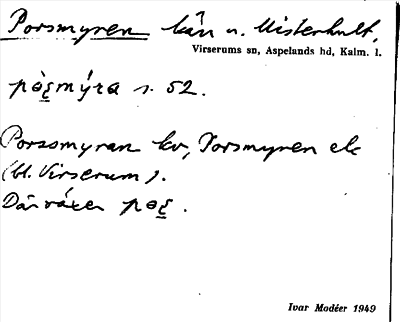 Porsmyren kän n. Misterhult,
Virserums sn, Aspelands hd, Kalm. l.
pòs̲mýra s. 52.
Porssmyran kv, Porsmyren ek
(bl. Virserum).
Där växer pos̲.
Ivar Modéer 1949